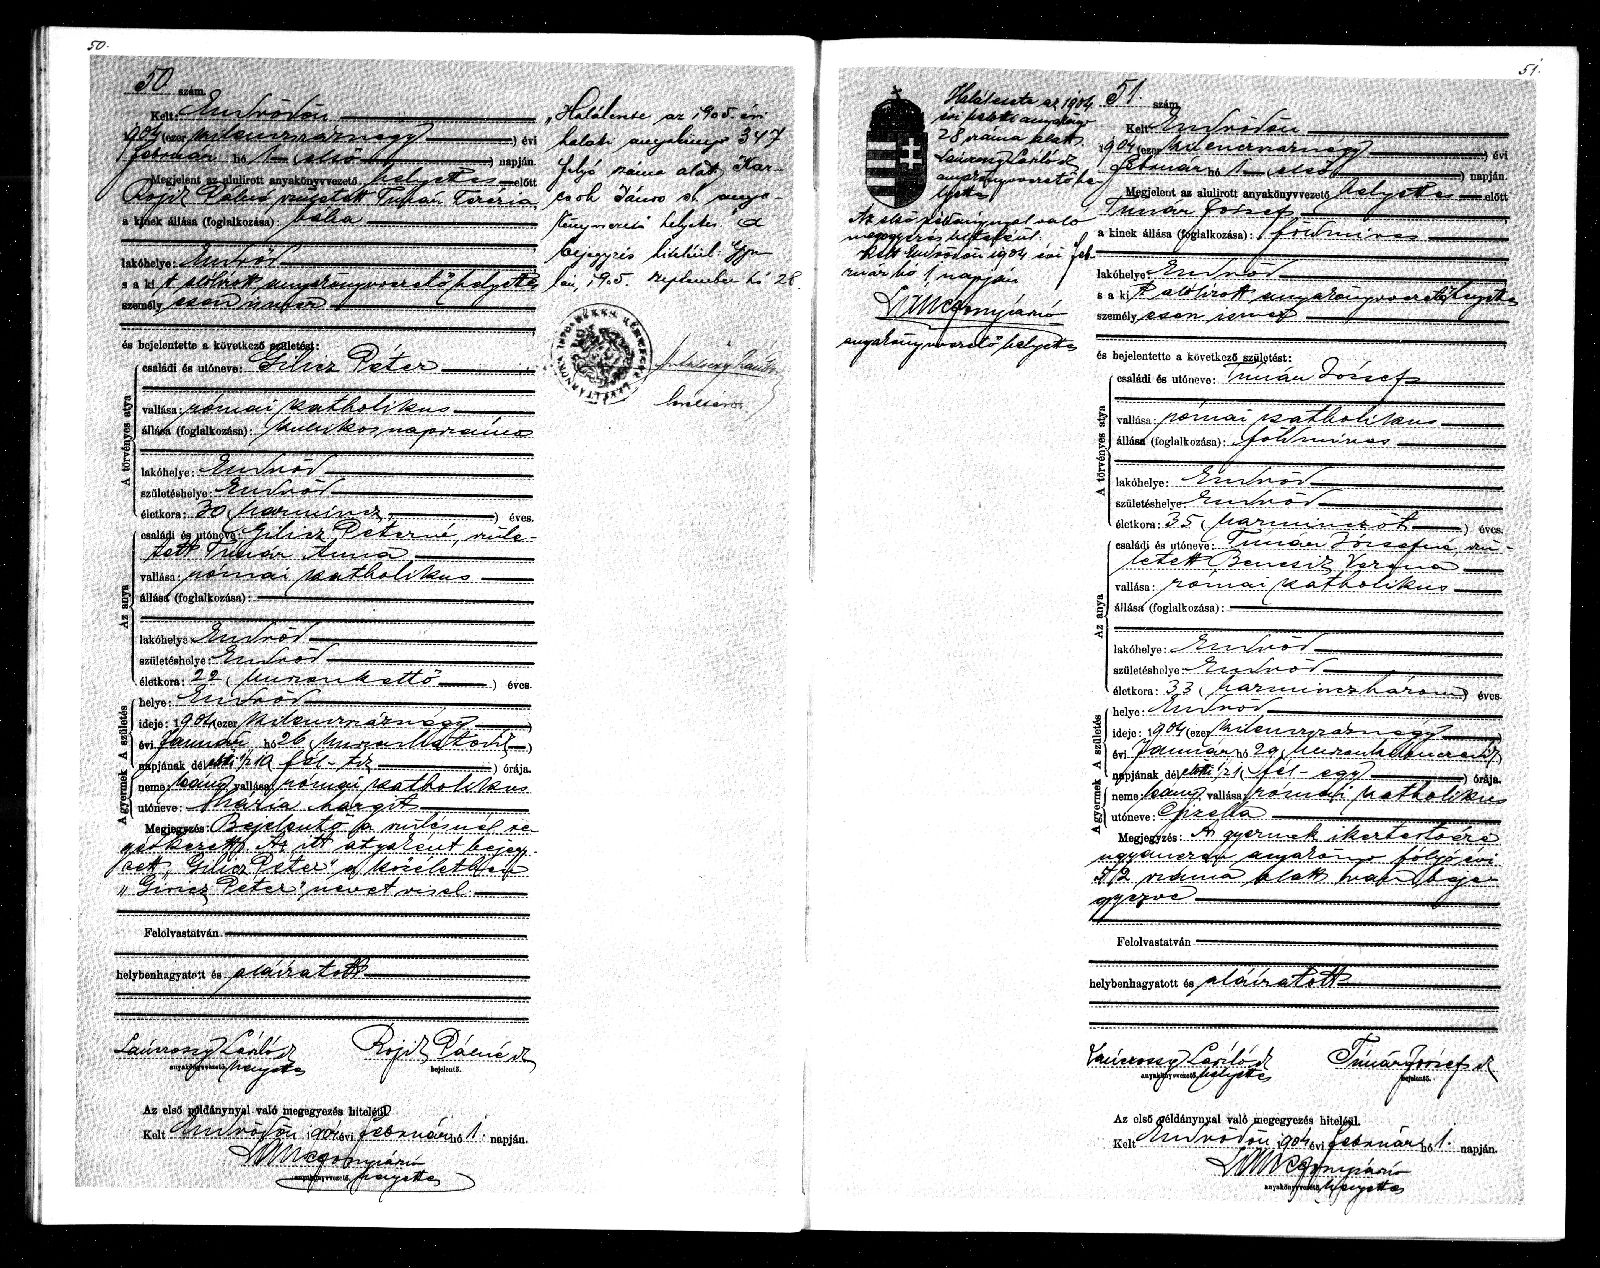 50.
50 szám.
Kelt: Endrődön
1904 (ezer kilenczszáznégy) évi
február hó 1 (első) napján.
Megjelent az alulirott anyakönyvvezető helyettes előtt
Rojik Pálné született Timár Terézia
a kinek állása (foglalkozása): bába
lakóhelye: Endrőd
s a kit alólirott anyakönyvvezető helyettes
személyesen ismer
és bejelentette a következő születést:
A törvényes atya
családi és utóneve: Gilicz Péter
vallása: római katholikus
állása (foglalkozása): munkás napszámos
lakóhelye: Endrőd
születéshelye: Endrőd
életkora: 30 (harmincz) éves.
Az anya
családi és utóneve: Gilicz Péterné, szüle-
tett Timár Anna
vallása: római katholikus
állása (foglalkozása):
lakóhelye: Endrőd
születéshelye: Endrőd
életkora: 22 (huszonkettő) éves.
A születés
helye: Endrőd
ideje: 1904 (ezer kilenczszáznégy)
évi január hó 26 (huszonhatodik)
napjának délelőtti ½10 (fél-tíz) órája.
A gyermek
neme: leány vallása: római katholikus
utóneve: Mária Margit
Megjegyzés: Bejelentő a szülésnél se-
gédkezett. Az itt atyaként bejegy-
zett „Gilicz Péter" a közéletben
„Giricz Péter" nevet visel.
Felolvastatván
helybenhagyatott és aláiratott
Rojik Pálné
anyakönyvvezető helyettes
bejelentő.
Az első példánynyal való megegyezés hiteléül
Kelt Endrődön 1904 évi február hó 1. napján.
anyakönyvvezető helyettes
„Halálesete az 1905. évi
halotti anyakönyv 347
folyó száma alatt
János s. k. anya-
könyvvezető helyettes." A
bejegyzés hiteléül. Gyu-
lán, 1905. szeptember hó 28.
51.
Halálesete az 1904
évi halotti anyakönyv
28 száma alatt.
anyakönyvvezető he-
lyettes
Az első példánynyal való
megegyezés hiteléül.
Kelt Endrődön 1904 évi feb-
ruár hó 1 napján
anyakönyvvezető helyettes
51. szám.
Kelt Endrődön
1904 (ezer kilenczszáznégy) évi
február hó 1 (első) napján.
Megjelent az alulirott anyakönyvvezető helyettes előtt
Timár József
a kinek állása (foglalkozása): földmíves
lakóhelye: Endrőd
s a kit alólirott anyakönyvvezető helyettes
személyesen ismer
és bejelentette a következő születést:
A törvényes atya
családi és utóneve: Timár József
vallása: római katholikus
állása (foglalkozása): földmíves
lakóhelye: Endrőd
születéshelye: Endrőd
életkora: 35 (harminczöt) éves.
Az anya
családi és utóneve: Timár Józsefné szü-
letett Verona
vallása: római katholikus
állása (foglalkozása):
lakóhelye: Endrőd
születéshelye: Endrőd
életkora: 33 (harminczhárom) éves.
A születés
helye: Endrőd
ideje: 1904 (ezer kilenczszáznégy)
évi január hó 29 (huszonkilenczedik)
napjának délelőtti ½1 (fél-egy) órája.
A gyermek
neme: leány vallása: római katholikus
utóneve: Gizella
Megjegyzés: A gyermek ikertestvére
ugyanezen anyakönyv folyó évi
52 száma alatt van beje-
gyezve
Felolvastatván
helybenhagyatott és aláiratott
Timár József
anyakönyvvezető helyettes
bejelentő.
Az első példánynyal való megegyezés hiteléül.
Kelt Endrődön 1904 évi február hó 1. napján.
anyakönyvvezető helyettes